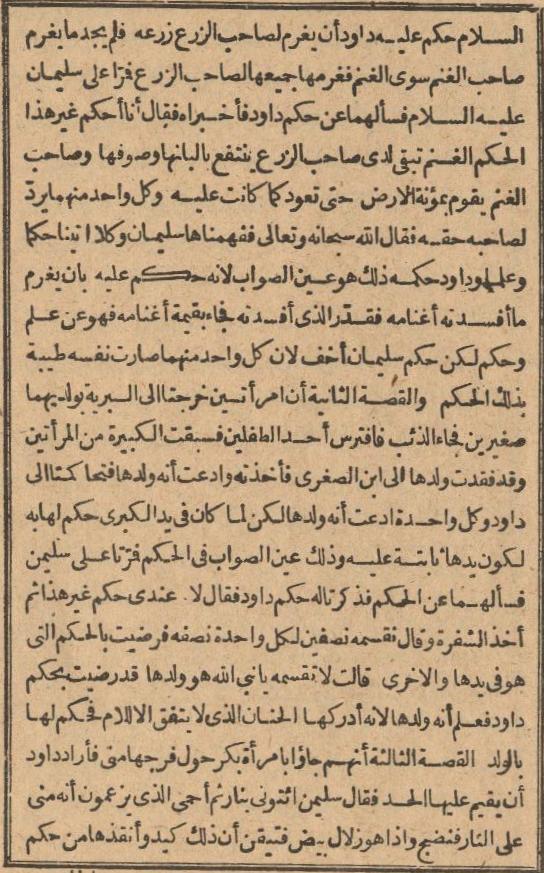 السلام حكم عليه داود أن يغرم لصاحب الزرع زرعه فلم يجد ما يغرم
صاحب الغنم سوى الغنم فغرمها جميعها لصاحب الزرع فمرّا على سليمان
عليه السلام فسألهما عن حكم داود فأخبراه فقال أنا أحكم غير هذا
الحكم الغنم تبقى لدى صاحب الزرع ينتفع بالبانها وصوفها وصاحب
الغنم يقوم بمؤنة الارض حتى تعود كما كانت عليه وكل واحد منهما يردّ
لصاحبه حقه فقال الله سبحانه وتعالى ففهمناها سليمان وكلا اتينا حكما
وعلما وداود حكمه ذلك هو عين الصواب لانه حكم عليه بان يغرم
ما أفسدته أغنامه فقدّر الذى أفسدته فجاء بقيمة أغنامه فهو عن علم
وحكم لكن حكم سليمان أخف لان كل واحد منهما صارت نفسه طيبة
بذلك الحكم والقصة الثانية أن امرأتين خرجتا الى البرية بولديهما
صغيرين فجاء الذئب فافترس أحد الطفلين فسبقت الكبيرة من المرأتين
وقد فقدت ولدها الى ابن الصغرى فأخذته وادعت أنه ولدها فتحا كمتا الى
داود وكل واحدة ادعت أنه ولدها لكن لما كان فى يد الكبرى حكم لها به
لكون يدها ثابتة عليه وذلك عين الصواب فى الحكم فمرّتا على سليمن
فسألهما عن الحكم فذكرتا له حكم داود فقال لا عندى حكم غير هذا ثم
أخذ الشفرة وقال نقسمه نصفين لكل واحدة نصفه فرضيت بالحكم التى
هو فى يدها والاخرى قالت لا تقسمه يا نبي الله هو ولدها قد رضيت بحكم
داود فعلم أنه ولدها لانه أدركها الحنان الذى لا يتفق الا للام فحكم لها
بالولد القصة الثالثة أنهم جاؤا بامرأة بكر حول فرجها منى فأراد داود
أن يقيم عليها الحد فقال سليمن ائتونى بنار ثم أحمى الذى يزعمون أنه منى
على النار فنضج واذا هو زلال بيض فتيقن أن ذلك كيد وأنقذها من حكم